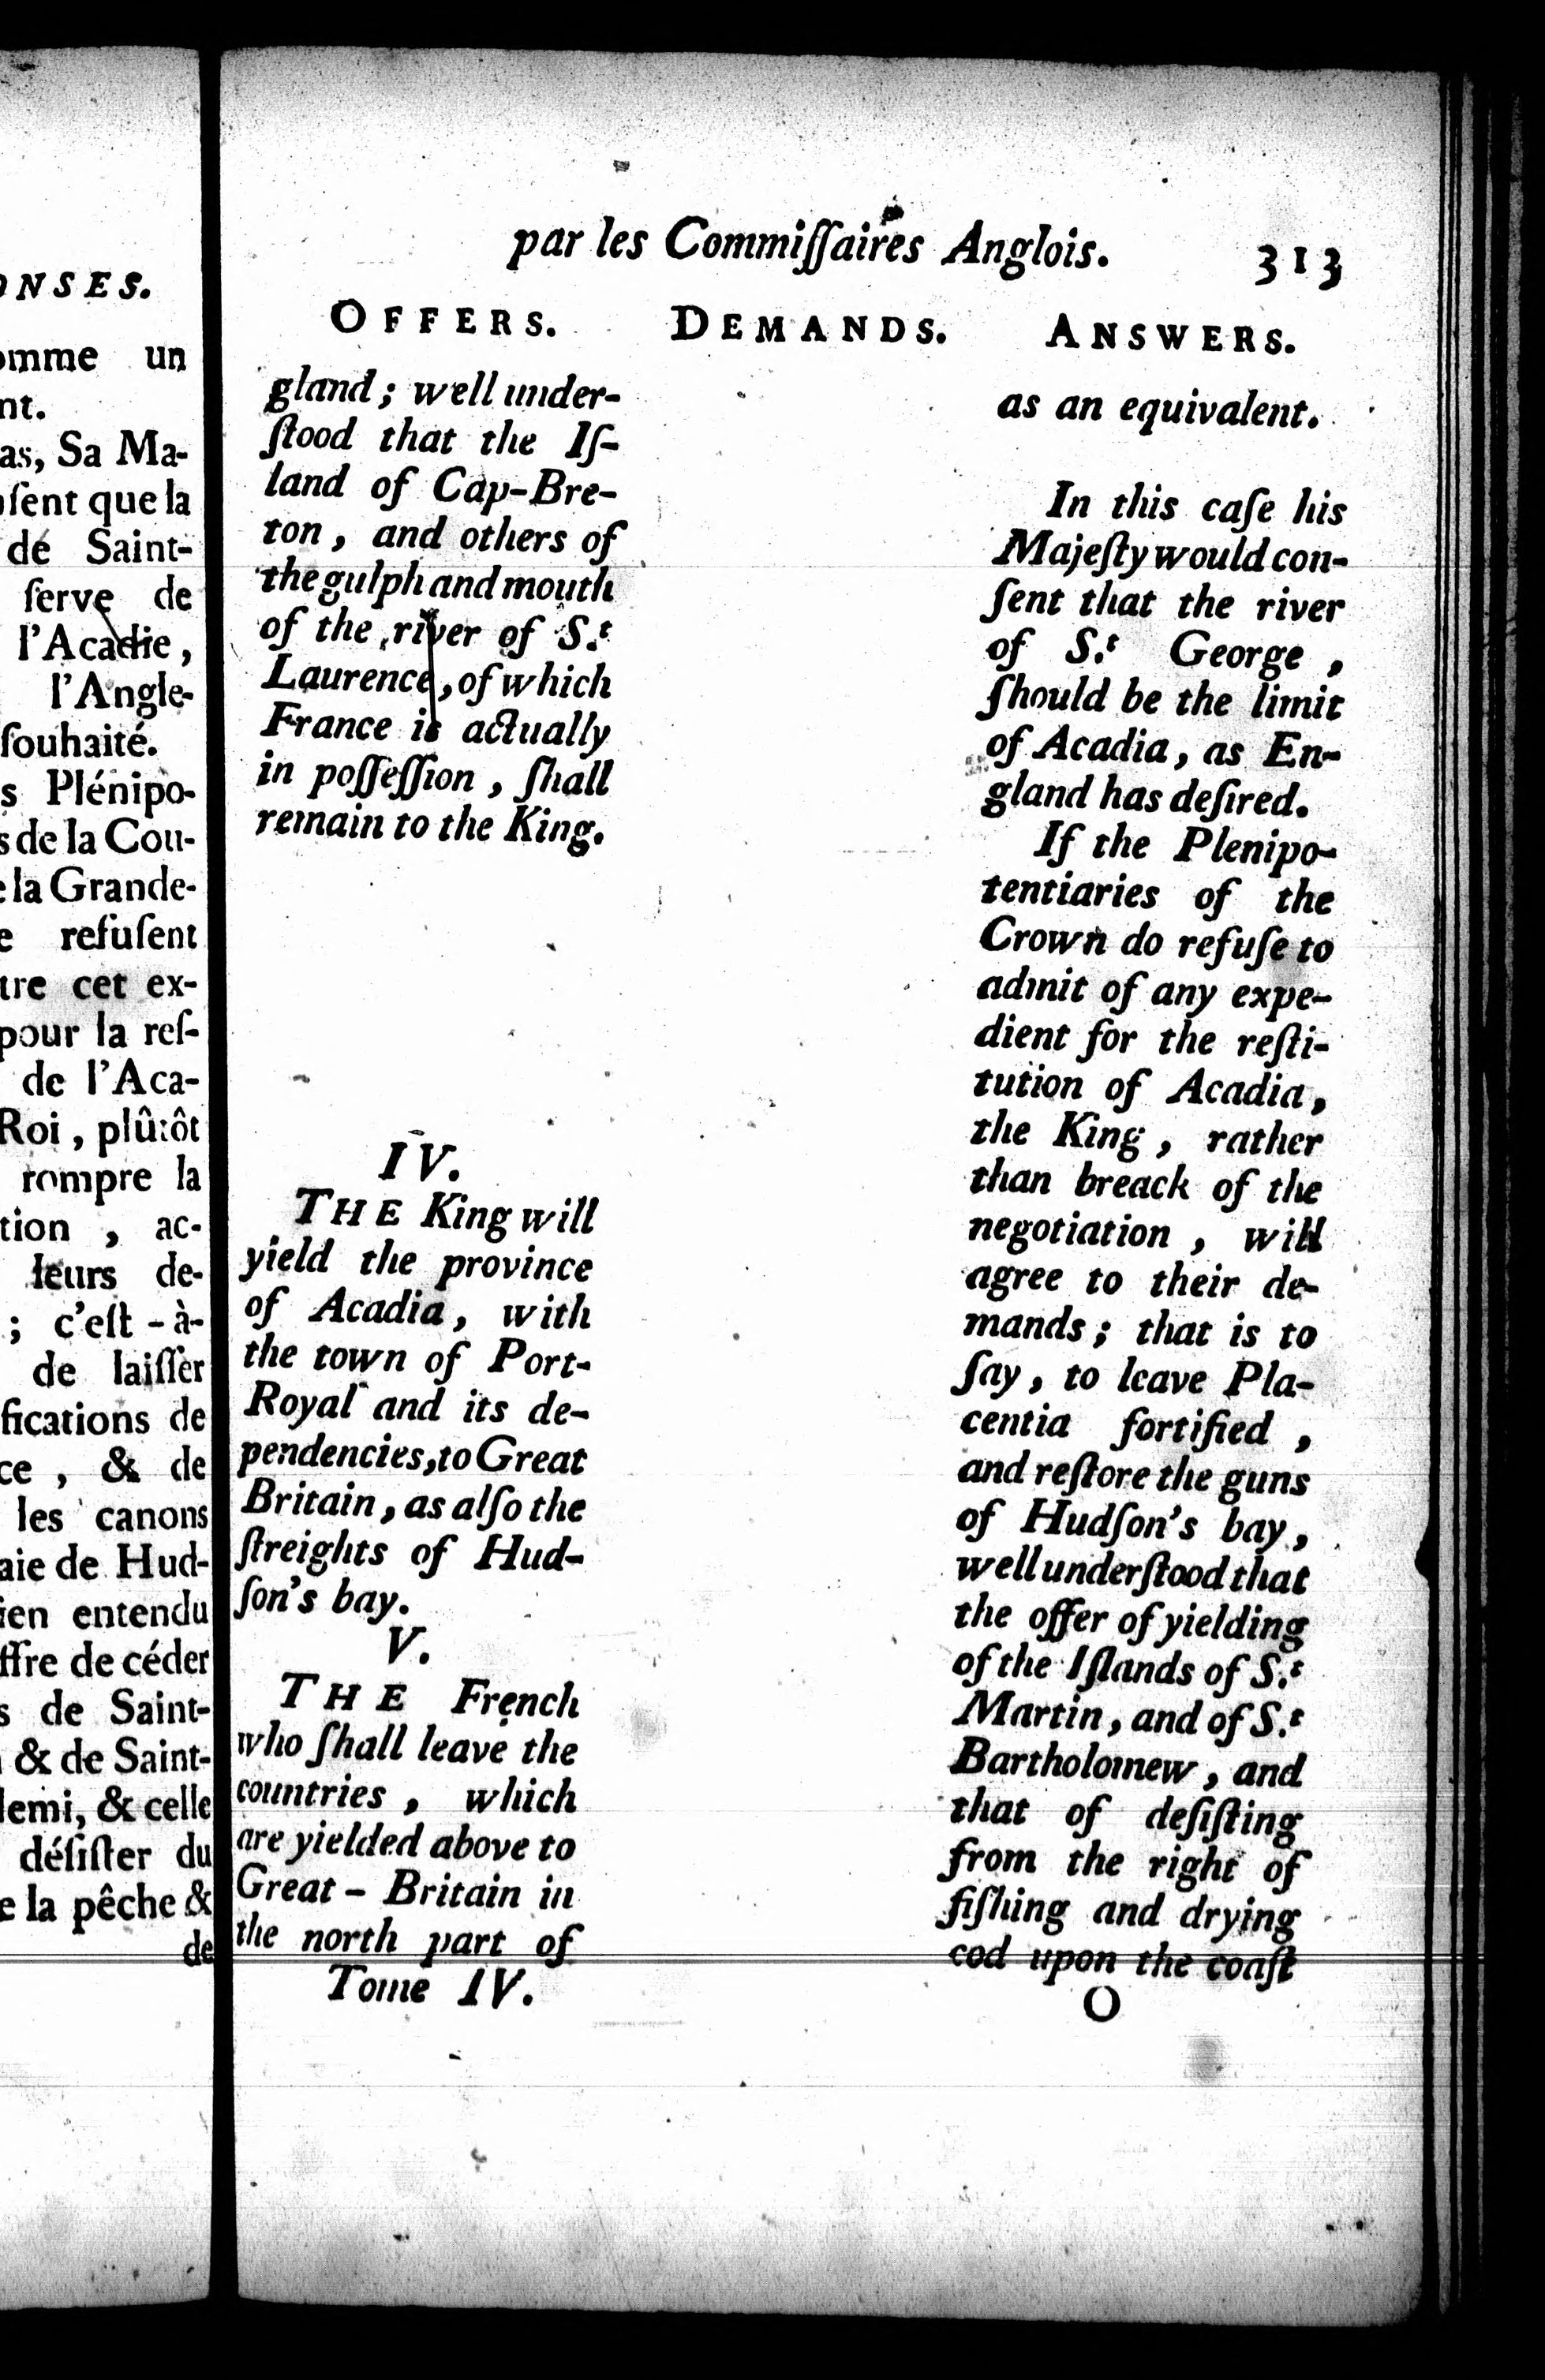 ONSES.
omme un
nt.
as, Sa Ma-
nſent que la
de Saint-
ſerve de
l'Acadie,
l'Angle-
ſouhaité.
s Plénipo-
s de la Cou-
e la Grande-
e refuſent
tre cet ex-
pour la reſ-
de l'Aca-
Roi, plûtôt
rompre la
tion, ac-
leurs de-
; c'eſt-à-
de laiſſer
fications de
ce, & de
les canons
aie de Hud-
ien entendu
ffre de céder
s de Saint-
& de Saint-
lemi, & celle
déſiſter du
e la pêche &
de
par les Commiſſaires Anglois. 313
OFFERS.
gland; well under-
ſtood that the Iſ-
land of Cap-Bre-
ton, and others of
the gulph and mouth
of the river of S.t
Laurence, of which
France is actually
in poſſeſſion, ſhall
remain to the King.
IV.
THE King will
yield the province
of Acadia, with
the town of Port-
Royal and its de-
pendencies, to Great
Britain, as alſo the
ſtreights of Hud-
ſon's bay.
V.
THE French
who ſhall leave the
countries, which
are yielded above to
Great-Britain in
the north part of
Tome IV.
DEMANDS.
ANSWERS.
as an equivalent.
In this caſe his
Majeſty would con-
ſent that the river
of S.t George,
ſhould be the limit
of Acadia, as En-
gland has deſired.
If the Plenipo-
tentiaries of the
Crown do refuſe to
admit of any expe-
dient for the reſti-
tution of Acadia,
the King, rather
than breack of the
negotiation, will
agree to their de-
mands; that is to
ſay, to leave Pla-
centia fortified,
and reſtore the guns
of Hudſon's bay,
well underſtood that
the offer of yielding
of the Iſlands of S.t
Martin, and of S.t
Bartholomew, and
that of deſiſting
from the right of
fiſhing and drying
cod upon the coaſt
O